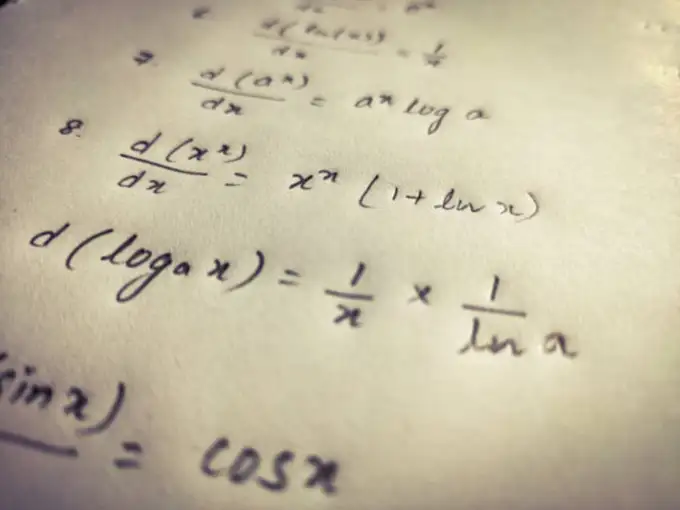 d(ln(x)) / dx = 1/x
7. d(aˣ) / dx = aˣ log a
8. d(xˣ) / dx = xˣ (1 + ln x)
d(logₐ x) = 1/x × 1/ln a
sin x) = cos x